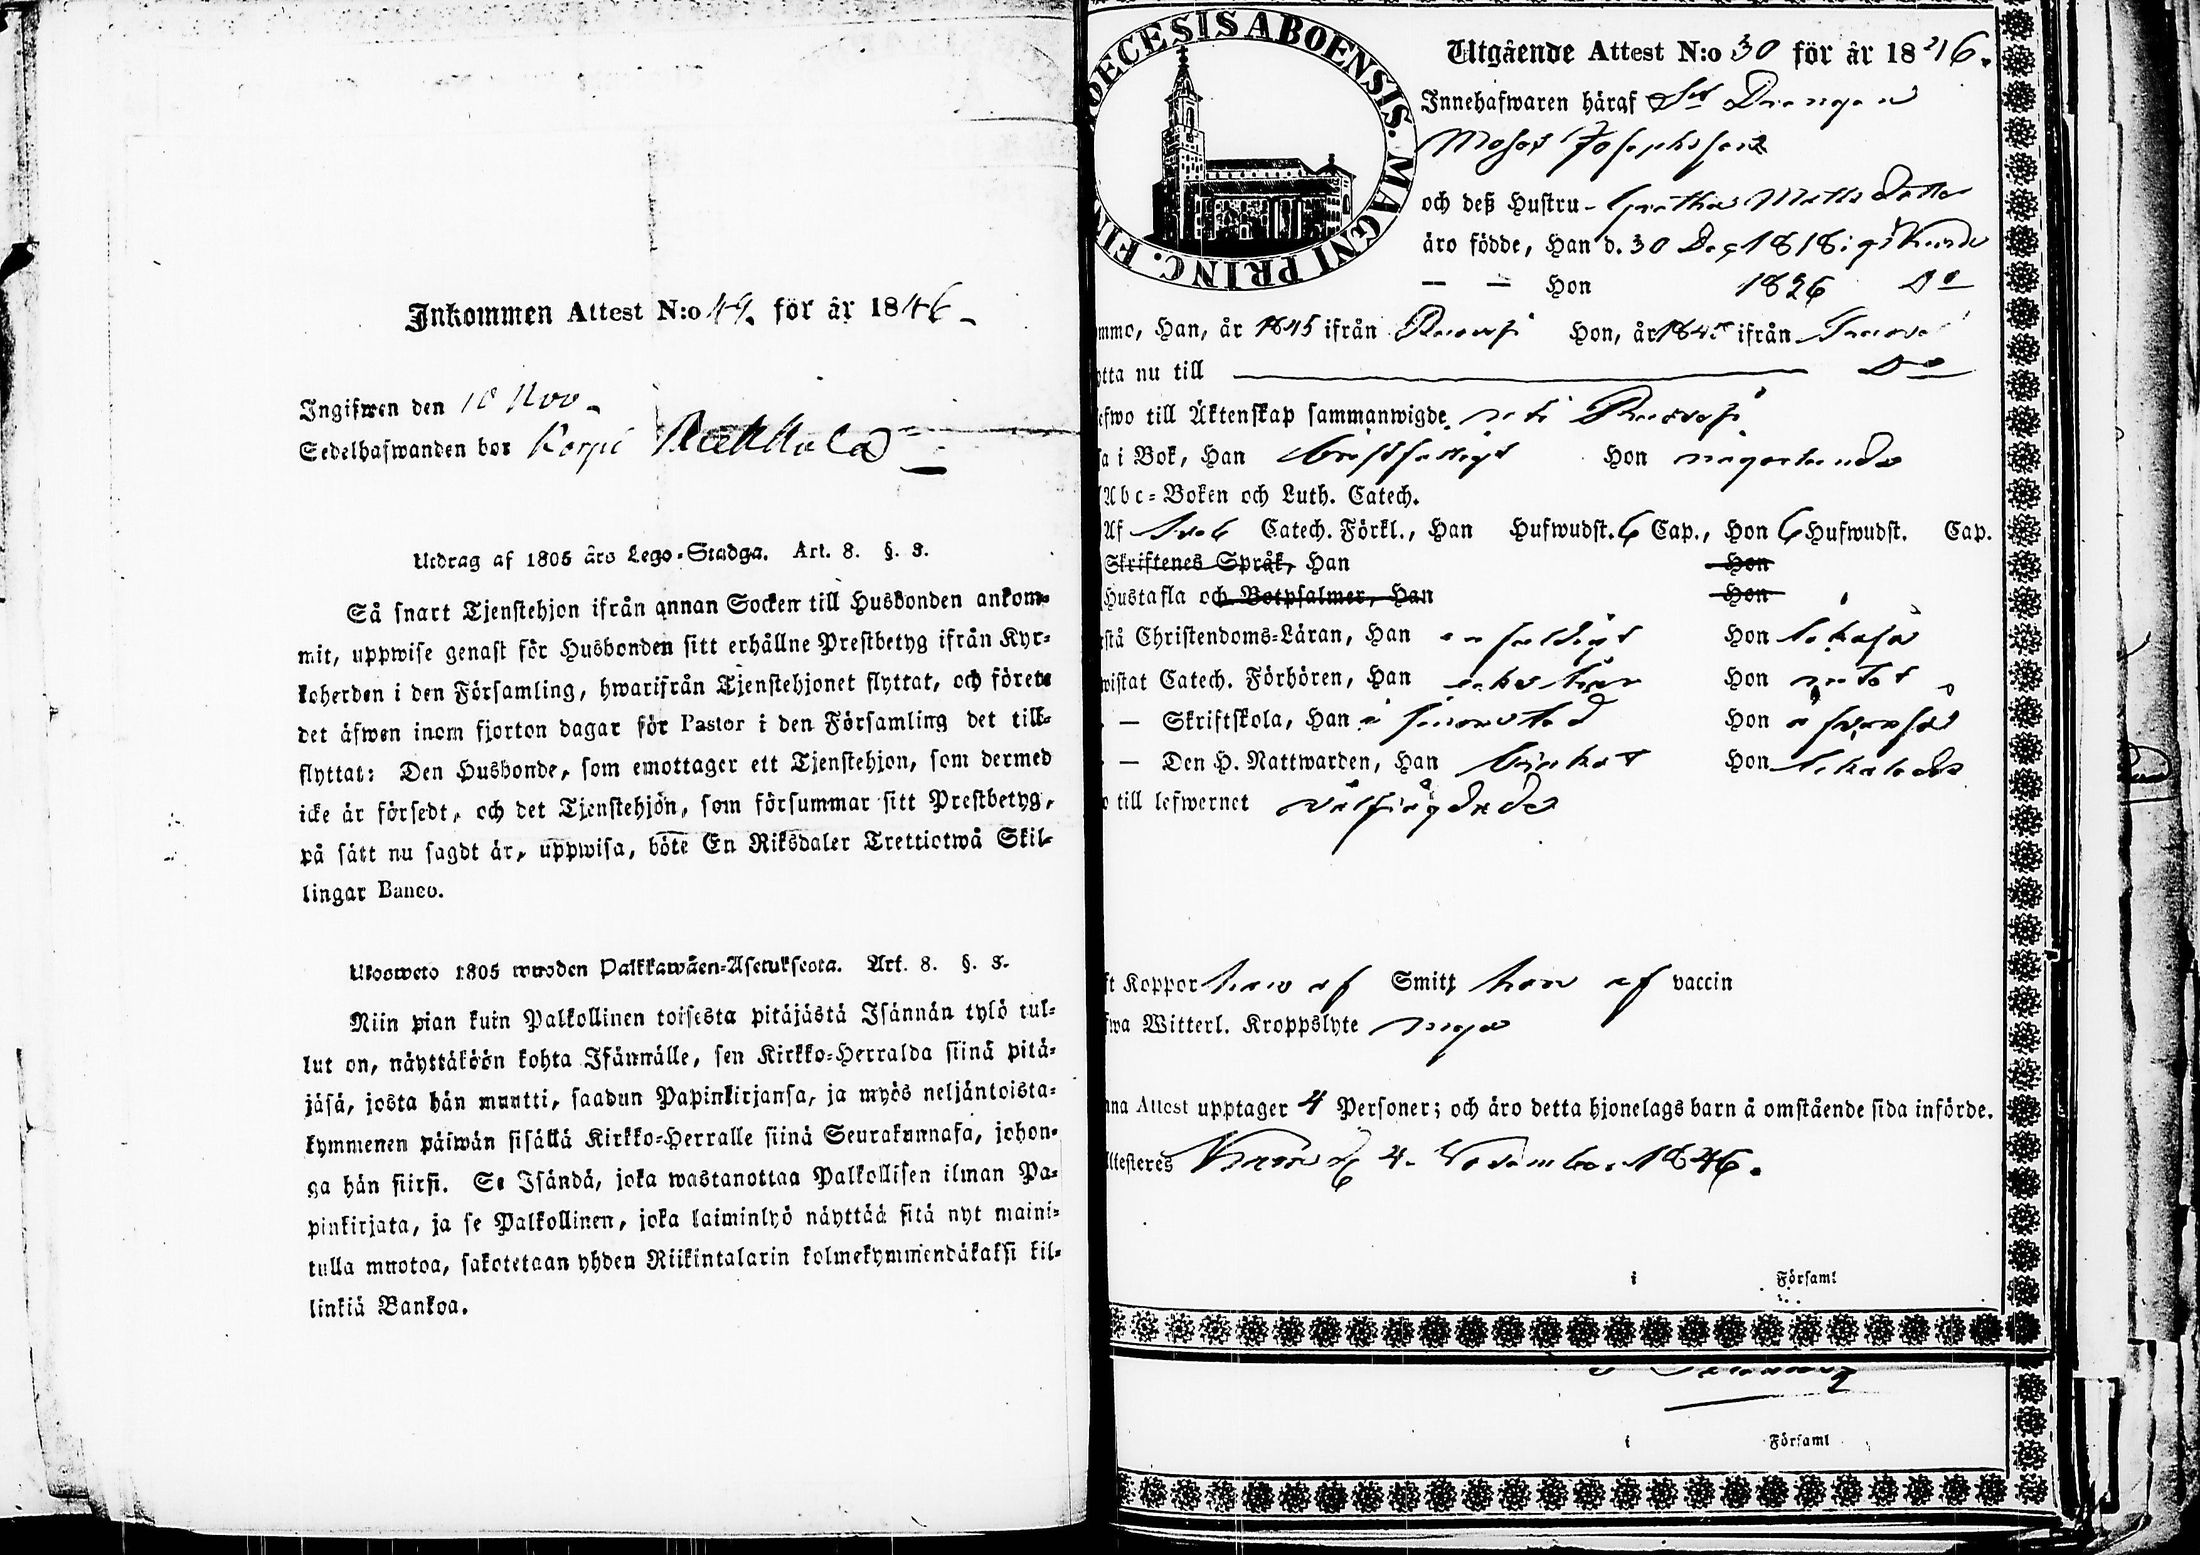 Inkommen Attest N:o 49. för år 1846.
Ingifwen den 10 Nov.
Sedelhafwanden bor Korpi
Utdrag af 1805 års Lego-Stadga. Art. 8. §. 3.
Så snart Tjenstehjon ifrån annan Socken till Husbonden ankom-
mit, uppwise genast för Husbonden sitt erhållne Prestbetyg ifrån Kyr-
koherden i den Församling, hwarifrån Tjenstehjonet flyttat, och förete
det äfwen inom fjorton dagar för Pastor i den Församling det till-
flyttat: Den Husbonde, som emottager ett Tjenstehjon, som dermed
icke är försedt, och det Tjenstehjon, som försummar sitt Prestbetyg,
på sätt nu sagdt är, uppwisa, böte En Riksdaler Trettiotwå Skil-
lingar Banco.
Ulosweto 1805 wuoden Palkkawäen-Asetuksesta. Art. 8. §. 3.
Niin pian kuin Palkollinen toisesta pitäjästä Isännän tylö tul-
lut on, näyttäköön kohta Isännälle, sen Kirkko-Herralda siinä pitä-
jäsä, josta hän muutti, saadun Papinkirjansa, ja myös neljäntoista-
kymmenen päiwän sisällä Kirkko-Herralle siinä Seurakunnasa, johon-
ga hän siirsi. Se Isändä, joka wastanottaa Palkollisen ilman Pa-
pinkirjata, ja se Palkollinen, joka laiminlyö näyttää sitä nyt maini-
tulla muotoa, sakotetaan yhden Riikintalarin kolmekymmendäkaksi kil-
linkiä Bankoa.
DIOECESIS ABOENSIS. MAGNI PRINC. FIN
Utgående Attest N:o 30 för år 1846.
Innehafwaren häraf Drengen
Josephsson
och deß Hustru Gretha Matts dotter
äro födde, Han d. 30 Dec 1818 i
— — Hon 1826 Do
mmo, Han, år 1845 ifrån Hon, år 1845 ifrån
tta nu till Do
efwo till Äktenskap sammanwigde
sa i Bok, Han bristfälligt Hon någorlunda
Abc-Boken och Luth. Catech.
Af Catech. Förkl., Han Hufwudst. 6 Cap., Hon 6 Hufwudst. Cap.
Skriftenes Språk, Han Hon
Hustafla och Botpsalmer, Han Hon
stå Christendoms-Läran, Han enfaldigt Hon likaså
wistat Catech. Förhören, Han Hon
— Skriftskola, Han Hon
— Den H. Nattwarden, Han Hon likaledes
o till lefwernet wälfrägdade
ft Koppor han af Smitt, hon af vaccin
fwa Witterl. Kroppslyte inga
nna Attest upptager 4 Personer; och äro detta hjonelags barn å omstående sida införde.
ttesteres 4 November 1846.
i Församl
i Församl